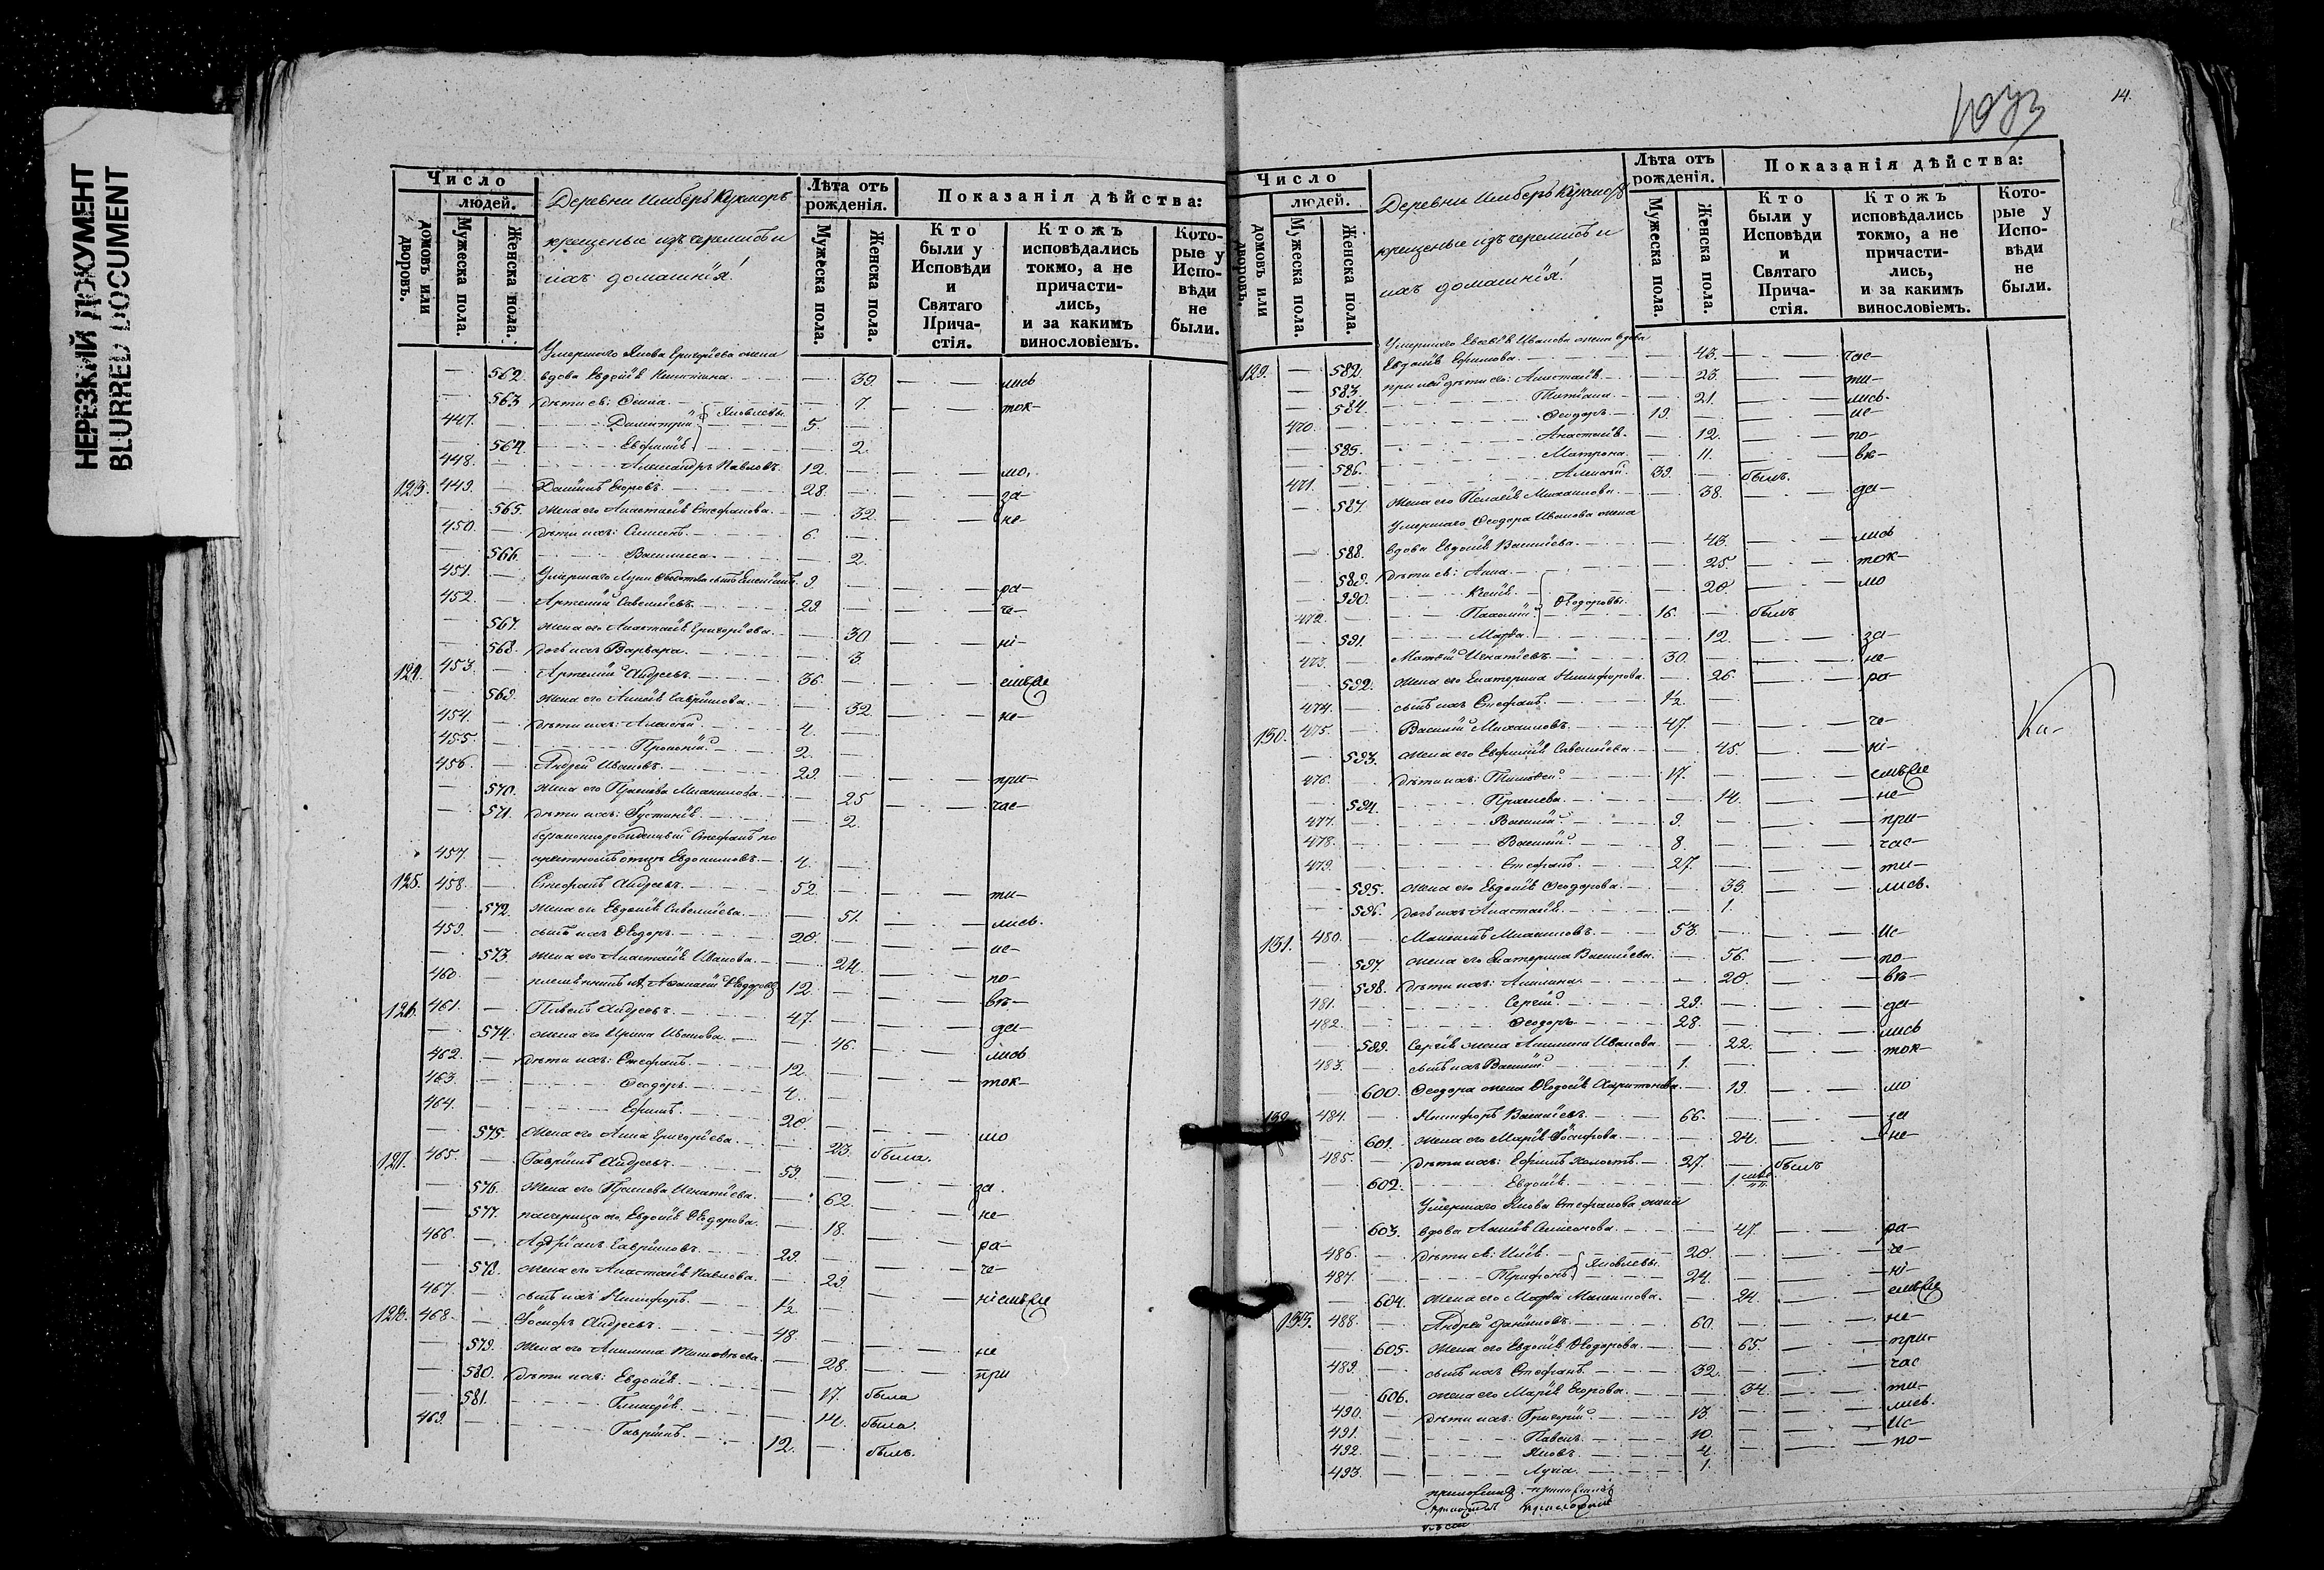 НЕРЕЗКИЙ ДОКУМЕНТ
BLURRED DOCUMENT
Число
людей.
домовъ или дворовъ.
Мужеска пола.
Женска пола.
Деревни Имберъ Кукморъ
крещеные изъ черемисъ и
ихъ домашнія:
Лѣта отъ рожденія.
Мужеска пола.
Женска пола.
Показанія дѣйства:
Кто были у Исповѣди и Святаго Причастія.
Ктожъ исповѣдались токмо, а не причастились, и за какимъ винословіемъ.
Которые у Исповѣди не были.
Умершаго Якова Григорьева жена
562. вдова Евдокія Никитина 39. лись
563 дѣти ея: Ѳекла 7. ток-
447. Димитрій Яковлевы 5.
564 Евфимія 2.
448. Александръ Павловъ 12. мо,
123. 449. Даніилъ Егоровъ 28. за-
565. жена его Анастасія Стефанова 32. не-
450. дѣти ихъ: Симеонъ 6.
566 Василиса 2.
451. Умершаго 9 ра-
452. Артемій Савельевъ 29. че-
567. жена его Анастасія Григорьева 30 ні-
568. дочь ихъ Варвара 3
124. 453. Артемій Андреевъ 36. емъ же
569. жена его Гаврилова 32. не-
454. дѣти ихъ: Алексѣй 4.
455. Прокопій 2.
456. Андрей Ивановъ 29. при-
570. жена его Прасковья Михаилова 25 час-
571. дѣти ихъ: Іустинія 2.
Стефанъ по
457. крестному отцу Евдокимовъ 4.
125. 458. Стефанъ Андреевъ 52. ти-
572. жена его Евдокія Савельева 51. лись.
459. сынъ их Ѳеодоръ 20. ис-
573. жена его Анастасія Иванова 24. по-
460. племянникъ Аѳанасій Ѳеодоровъ 12. вѣ-
126. 461. Павелъ Андреевъ 47. да-
574. жена его Ирина Иванова 46. лись
462. дѣти ихъ: Стефанъ 12. ток-
463. Ѳеодоръ 4.
464. Ефимъ 20
575. жена его Анна Григорьева 23. была. мо
127. 465. Гавріилъ Андреевъ 59. за
576. жена его Прасковья Игнатьева 62. не-
577. падчерица его Евдокія Ѳеодорова 18. ра-
466. Адріанъ Гавриловъ 29. че-
578. жена его Анастасія Павлова 29. ніемъ же
467. сынъ ихъ Никифоръ 1/2
128. 468. Іосифъ Андреевъ 48. не
579. жена его Акилина Тимоѳеева 28. при
580. дѣти ихъ: Евдокія 17. была
581. Гликерія 14. была.
469. Гавріилъ 12. былъ.
14.
Число
людей.
домовъ или дворовъ.
Мужеска пола.
Женска пола.
Деревни Имберъ Кукморъ
крещеные изъ черемисъ и
ихъ домашнія:
Лѣта отъ рожденія.
Мужеска пола.
Женска пола.
Показанія дѣйства:
Кто были у Исповѣди и Святаго Причастія.
Ктожъ исповѣдались токмо, а не причастились, и за какимъ винословіемъ.
Которые у Исповѣди не были.
Умершаго Евсевія Иванова жена вдова
129. 582. Евдокія Ефимова 43. час-
583. при ней дѣти его: Анастасія 23. ти-
584. Татіана 21. лись.
470. Ѳеодоръ 19. ис-
585. Анастасія 12. по-
586. Матрона 11. вѣ-
471. Алексѣй 39. былъ.
587. жена его Пелагея Михаилова 38. да-
Умершаго Ѳеодора Иванова жена
588. вдова Евдокія Васильева 43. лись
589. дѣти ея: Анна 25. ток-
590. Ксенія 20. мо
472. Пахомій Ѳеодоровы 16. былъ
591. Марѳа 12. за-
473. Матвѣй Игнатьевъ 30. не-
592. жена его Екатерина Никифорова 26. ра-
474. сынъ ихъ Стефанъ 1/2
130. 475. Василій Михаиловъ 47. че- Ка-
593. жена его Евфимія Савельева 45. ні-
476. дѣти ихъ: Тимоѳей 17. емъ же
594. Прасковья 14. не-
477. Василій 9. при-
478. Василій 8. час-
479. Стефанъ 27. ти-
595. жена его Евдокія Ѳеодорова 33. лись.
596. дочь ихъ Анастасія 1.
131. 480. Максимъ Михаиловъ 53. Ис-
597. жена его Екатерина Васильева 56. по-
598. дѣти ихъ: Акилина 20. вѣ-
481. Сергій 29. да-
482. Ѳеодоръ 28. лись
599. Сергія жена Акилина Иванова 22. ток-
483. сынъ ихъ Василій 1.
600. Ѳеодора жена Ѳеодосія Харитонова 19. мо
132. 484. Никифоръ Васильевъ 66. за
601. жена его Марія Іосифова 24. не-
485. дѣти ихъ: Ефимъ холостъ 27. былъ
602. Евдокія 1
Умершаго Якова Стефанова жена
603. вдова Симеонова 47. ра-
486. дѣти ея: Илія Яковлевы 20. че-
487. Трифонъ 24. ні-
604. жена его Марѳа Максимова 24. емъ же
133. 488. Андрей Даніиловъ 60. не-
605. жена его Евдокія Ѳеодорова 65. при-
489. сынъ ихъ Стефанъ 32. час
606. жена его Марія Егорова 34. ти-
490. дѣти ихъ: Григорій 13. лись.
491. Павелъ 10. Ис-
492. Яковъ 4. по-
493. Лука 1.